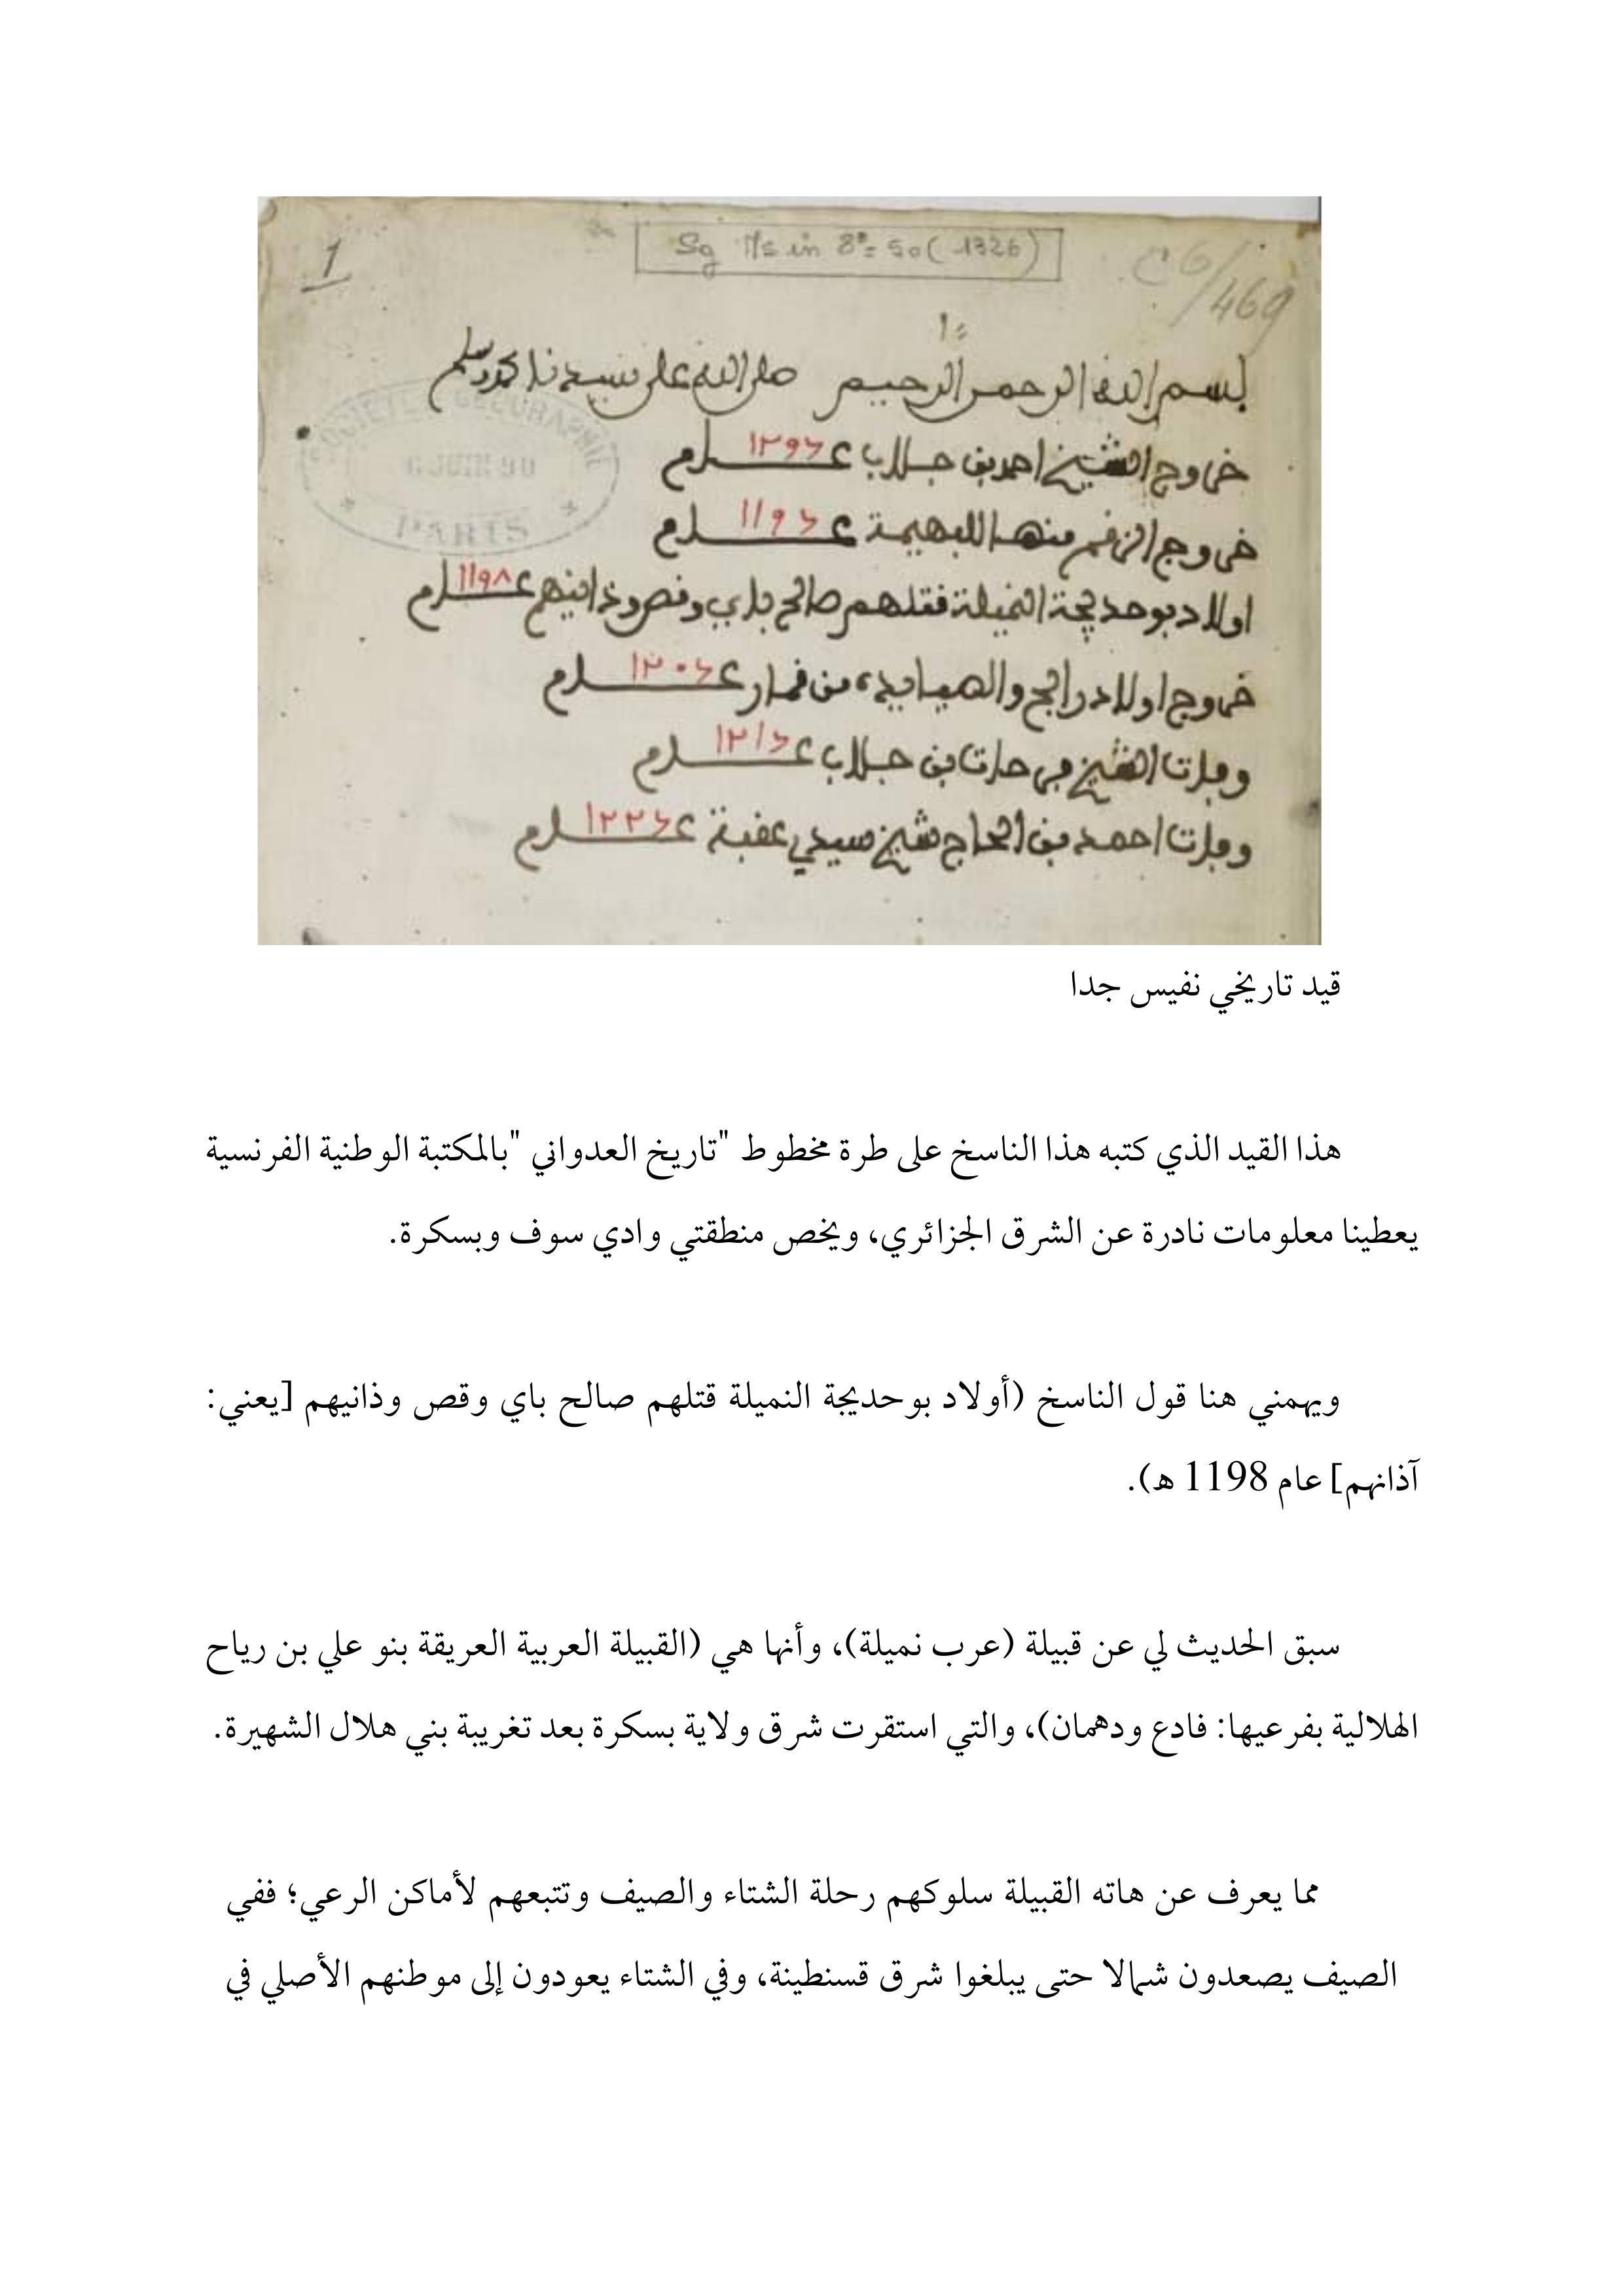 1
Sg Ms in 8° = 50 (1326)
C G/469
بسم الله الرحمن الرحيم صلى الله على سيدنا محمد وسلم
خروج الشيخ احمد بن جلاب عام
خروج الزقم منها البهيمة عام
SOCIETE DE GEOGRAPHIE
6 JUIN 90
* PARIS *
اولاد بوحديجة النميلة فتلهم صالح باي وفص وذانيهم عام ١١٩٨
خروج اولاد رابح والعبابيد من فمار عام
وفات الشيخ فرحات بن جلاب عام
وفات احمد بن الحاج شيخ سيدي عفبة عام
قيد تاريخي نفيس جدا
هذا القيد الذي كتبه هذا الناسخ على طرة مخطوط "تاريخ العدواني "بالمكتبة الوطنية الفرنسية
يعطينا معلومات نادرة عن الشرق الجزائري، ويخص منطقتي وادي سوف وبسكرة.
ويهمني هنا قول الناسخ (أولاد بوحديجة النميلة قتلهم صالح باي وقص وذانيهم [يعني:
آذانهم] عام 1198 ه).
سبق الحديث لي عن قبيلة (عرب نميلة)، وأنها هي (القبيلة العربية العريقة بنو علي بن رياح
الهلالية بفرعيها: فادع ودهمان)، والتي استقرت شرق ولاية بسكرة بعد تغريبة بني هلال الشهيرة.
مما يعرف عن هاته القبيلة سلوكهم رحلة الشتاء والصيف وتتبعهم لأماكن الرعي؛ ففي
الصيف يصعدون شمالا حتى يبلغوا شرق قسنطينة، وفي الشتاء يعودون إلى موطنهم الأصلي في